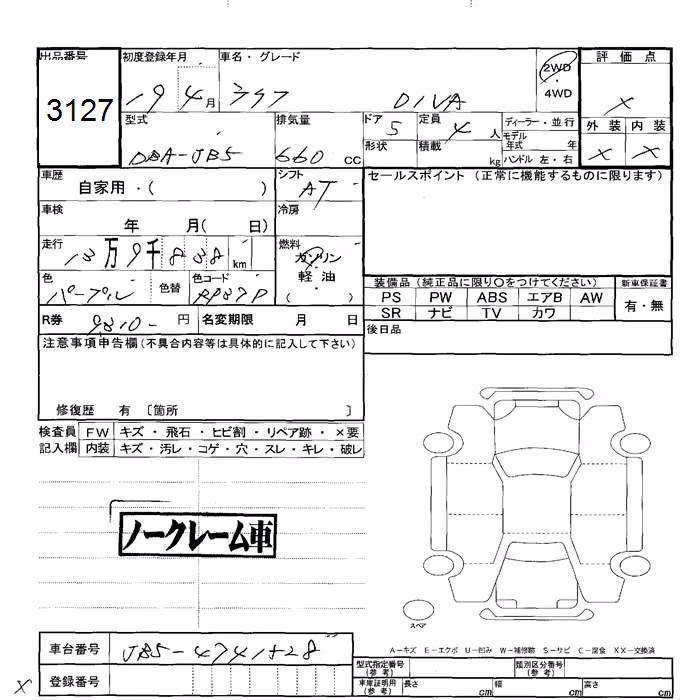 出品番号 3127
初度登録年月 19 4月
車名・グレード ライフ DIVA
2WD
4WD
評価点 X
外装 内装
X X
型式 DBA-JB5
排気量 660 CC
ドア 5
定員 4 人
ディーラー・並行
形状
積載 kg
モデル年式 年
ハンドル 左・右
車歴 自家用・( )
シフト AT
セールスポイント (正常に機能するものに限ります)
車検 年 月( 日)
冷房
走行 13万9千838 km
燃料 ガソリン
軽油
( )
色 パープル 色替
色コード RP37P
装備品 (純正品に限り○をつけてください)
新車保証書
PS PW ABS エアB AW
有・無
SR ナビ TV カワ
R券 9810- 円 名変期限 月 日
後日品
注意事項申告欄(不具合内容等は具体的に記入して下さい)
修復歴 有 〔箇所 〕
検査員 FW キズ・飛石・ヒビ割・リペア跡・×要
記入欄 内装 キズ・汚レ・コゲ・穴・スレ・キレ・破レ
ノークレーム車
スペア
A-キズ E-エクボ U-凹み W-補修跡 S-サビ C-腐食 XX-交換済
車台番号 JB5-4741528
型式指定番号(参考)
類別区分番号(参考)
X
登録番号
車庫証明用(参考) 長さ cm 幅 cm 高さ cm